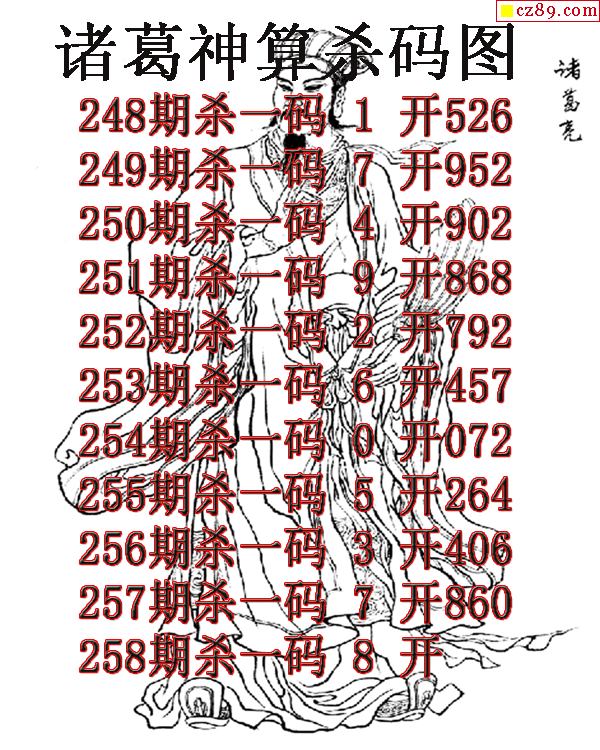 cz89.com
诸葛神算杀码图
诸葛亮
248期杀一码 1 开526
249期杀一码 7 开952
250期杀一码 4 开902
251期杀一码 9 开868
252期杀一码 2 开792
253期杀一码 6 开457
254期杀一码 0 开072
255期杀一码 5 开264
256期杀一码 3 开406
257期杀一码 7 开860
258期杀一码 8 开